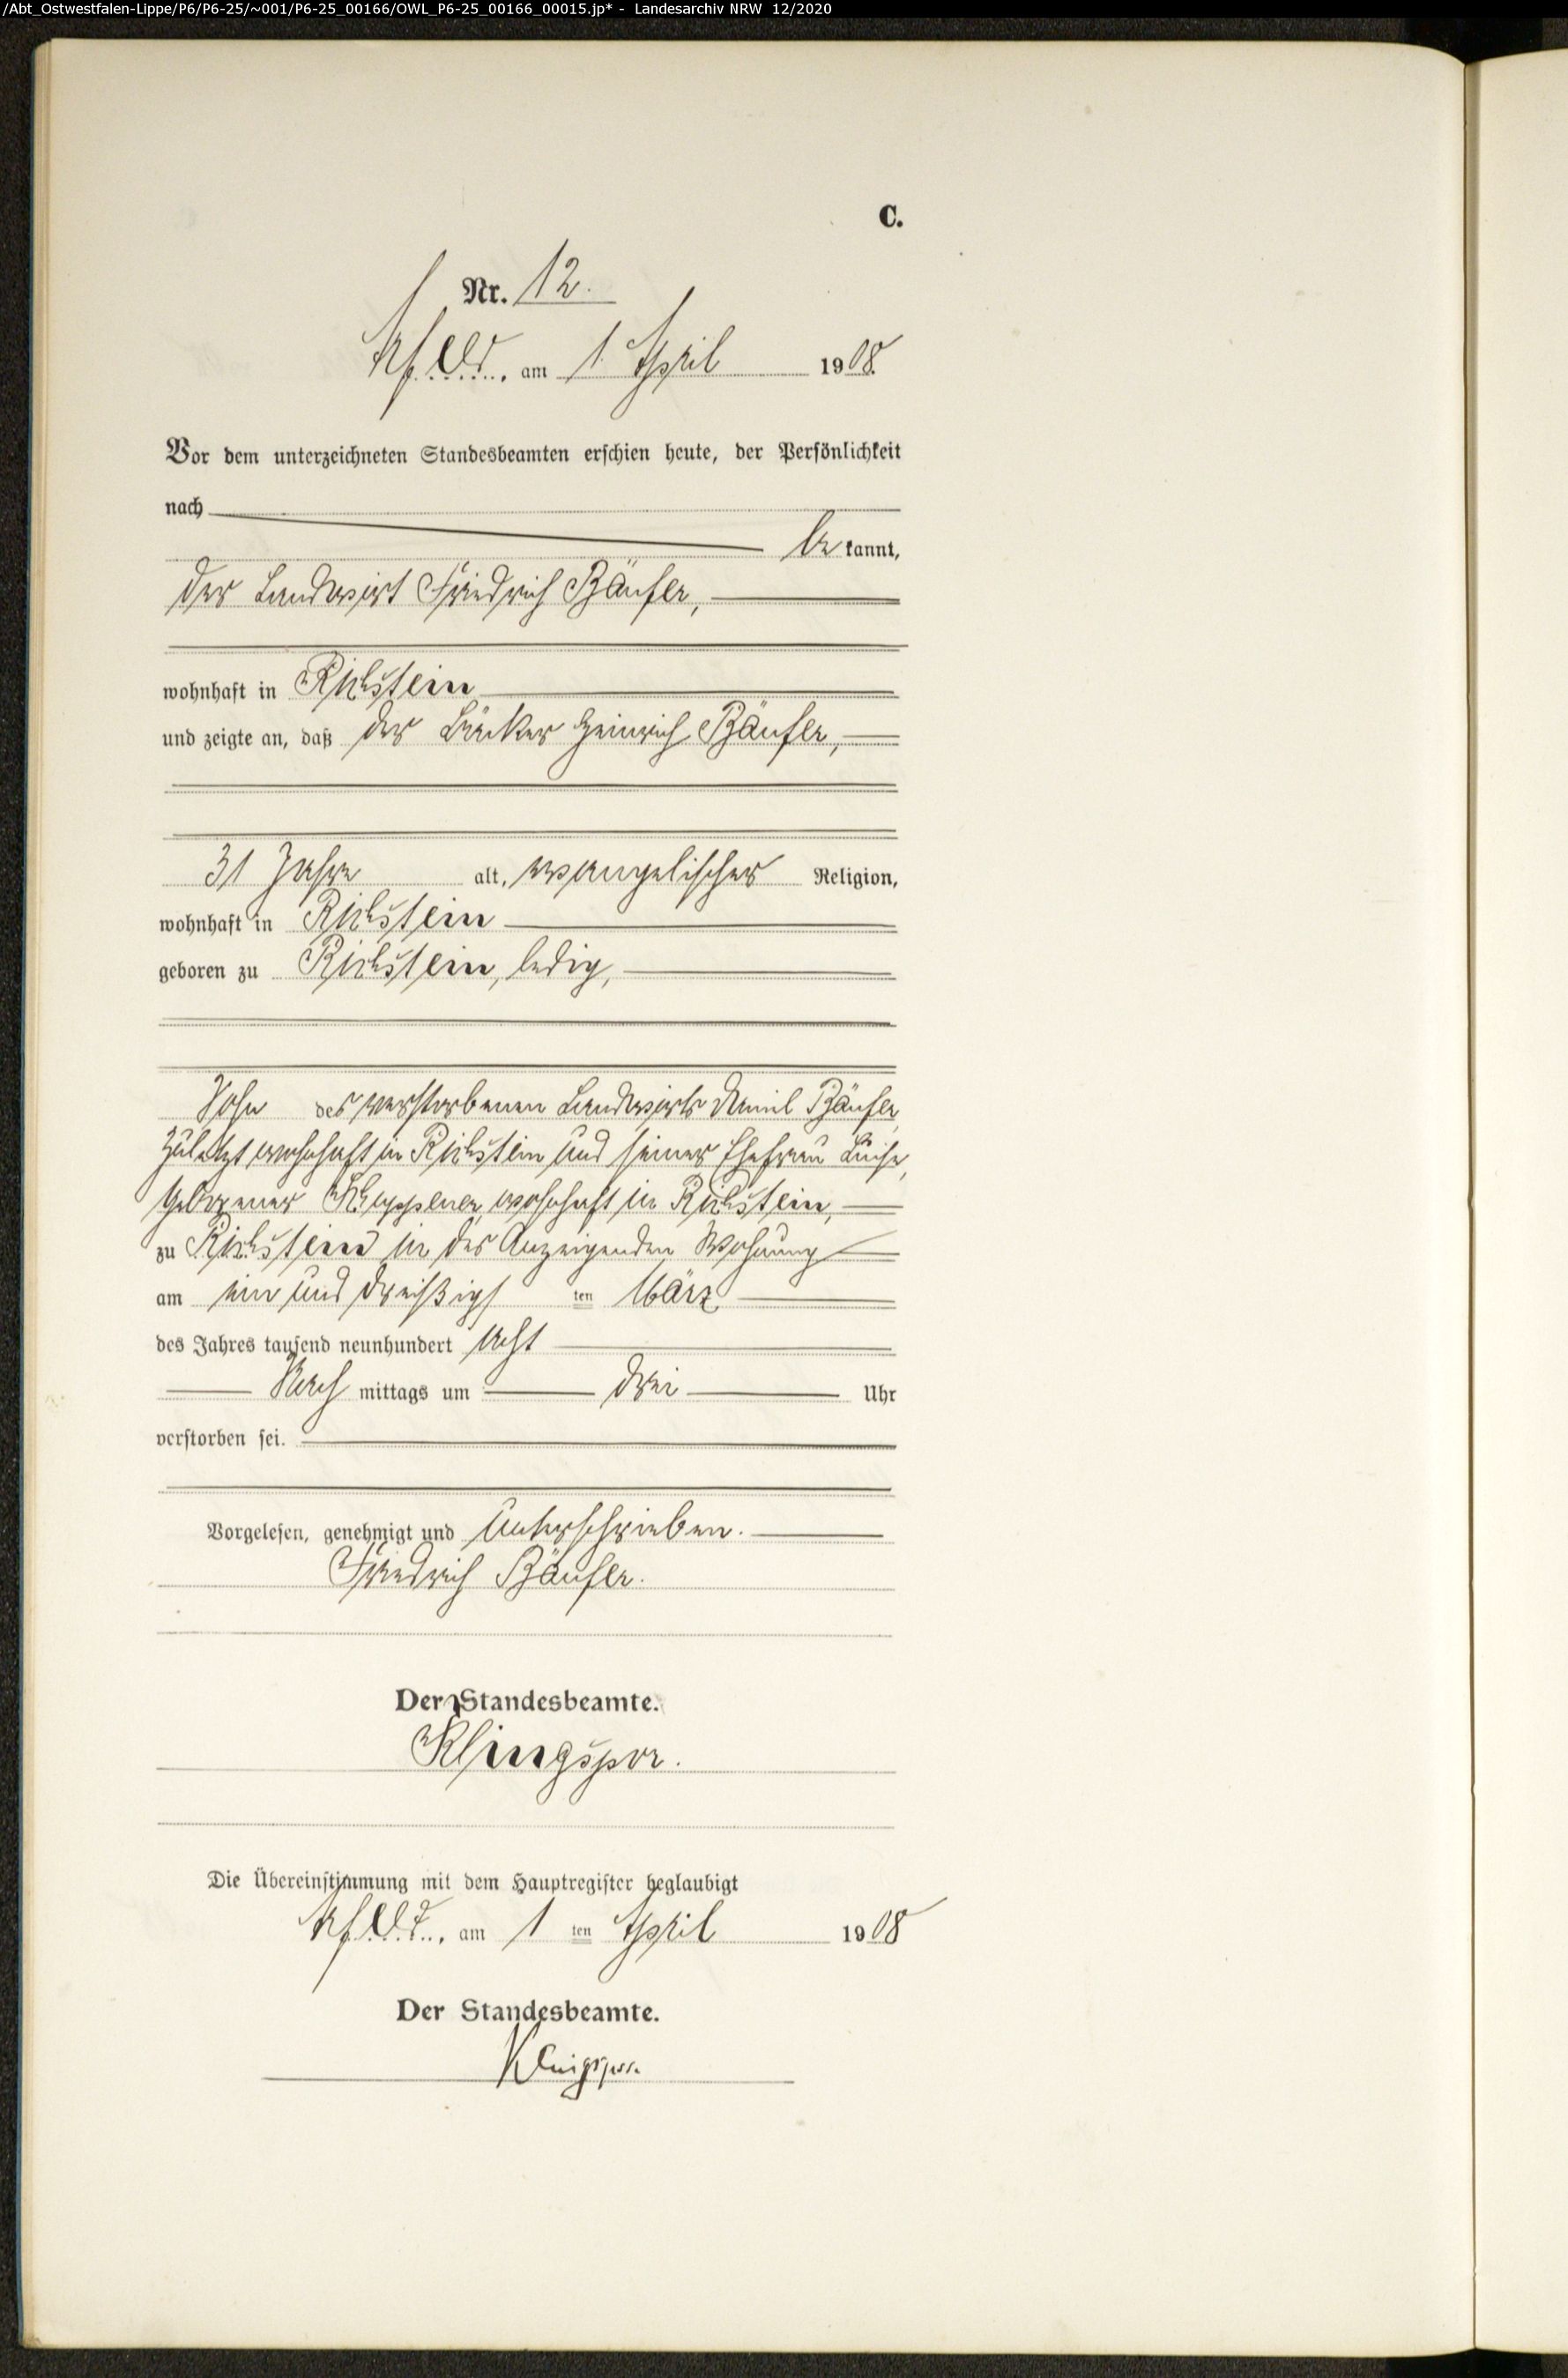 /Abt_Ostwestfalen-Lippe/P6/P6-25/~001/P6-25_00166/OWL_P6-25_00166_00015.jp* - Landesarchiv NRW 12/2020
C.
Nr. 12.
Arfeld, am 1. April 1908.
Vor dem unterzeichneten Standesbeamten erschien heute, der Persönlichkeit
nach
bekannt,
der Landwirt Friedrich Bäufer,
wohnhaft in Richstein
und zeigte an, daß der Bäcker Heinrich Bäufer,
31 Jahre alt, evangelischer Religion,
wohnhaft in Richstein
geboren zu Richstein, ledig,
Sohn des verstorbenen Landwirts Daniel Bäufer,
zuletzt wohnhaft in Richstein und seiner Ehefrau Luise,
geborener wohnhaft in Richstein,
zu Richstein in des Anzeigenden Wohnung
am ein und dreißigsten März
des Jahres tausend neunhundert acht
Nach mittags um drei Uhr
verstorben sei.
Vorgelesen, genehmigt und unterschrieben.
Friedrich Bäufer.
Der Standesbeamte.
Klingspor.
Die Übereinstimmung mit dem Hauptregister beglaubigt
Arfeld, am 1 ten April 1908
Der Standesbeamte.
Klingspor.